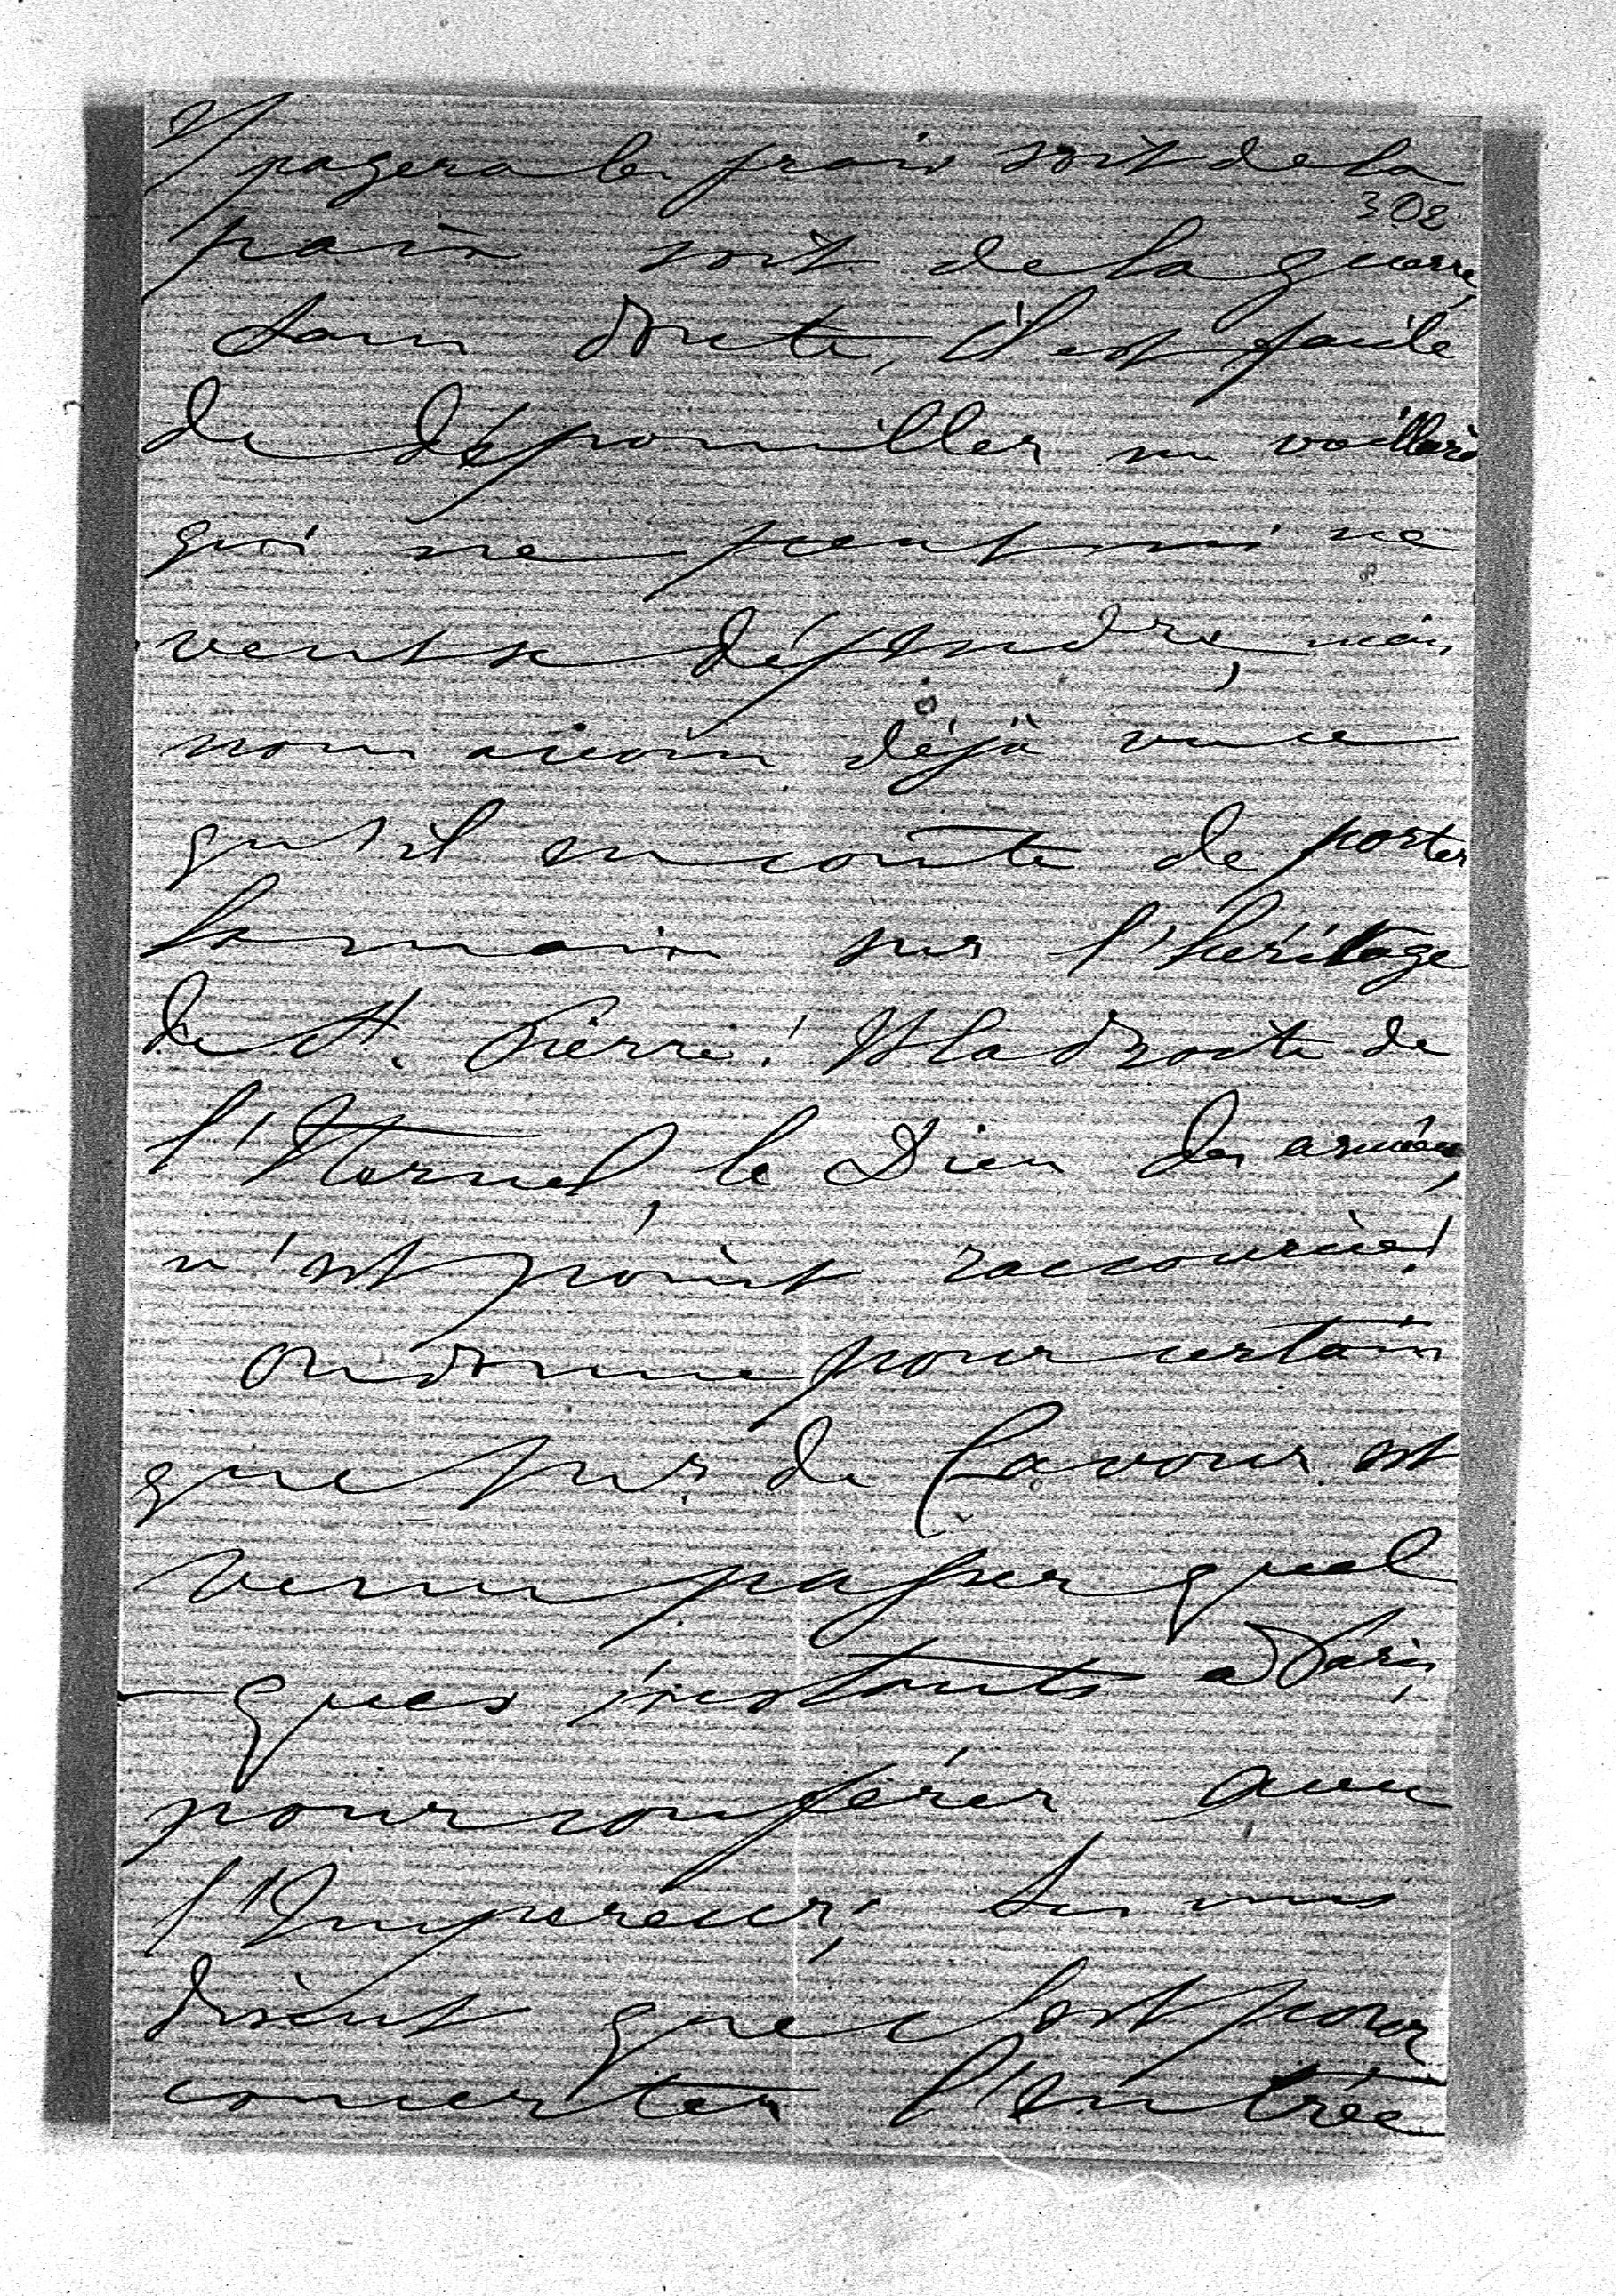 payera les frais soit de la
302
paix soit de la guerre,
Sans doute, il est facile
de dépouiller un vieillard
qui ne peut ni ne
veut se défendre, mais
nous avons déjà vu ce
qu'il en coûte de porter
la main sur l'héritage
de St. Pierre! Et la droite de
l'Eternel, le Dieu des armées,
n'est point raccourcie!
On donne pour certain
que Mr. de Cavour est
venu passer quel
-ques instants à Paris,
pour conférer avec
l'Empereur; les uns
disent que c'est pour
concerter l'entrée